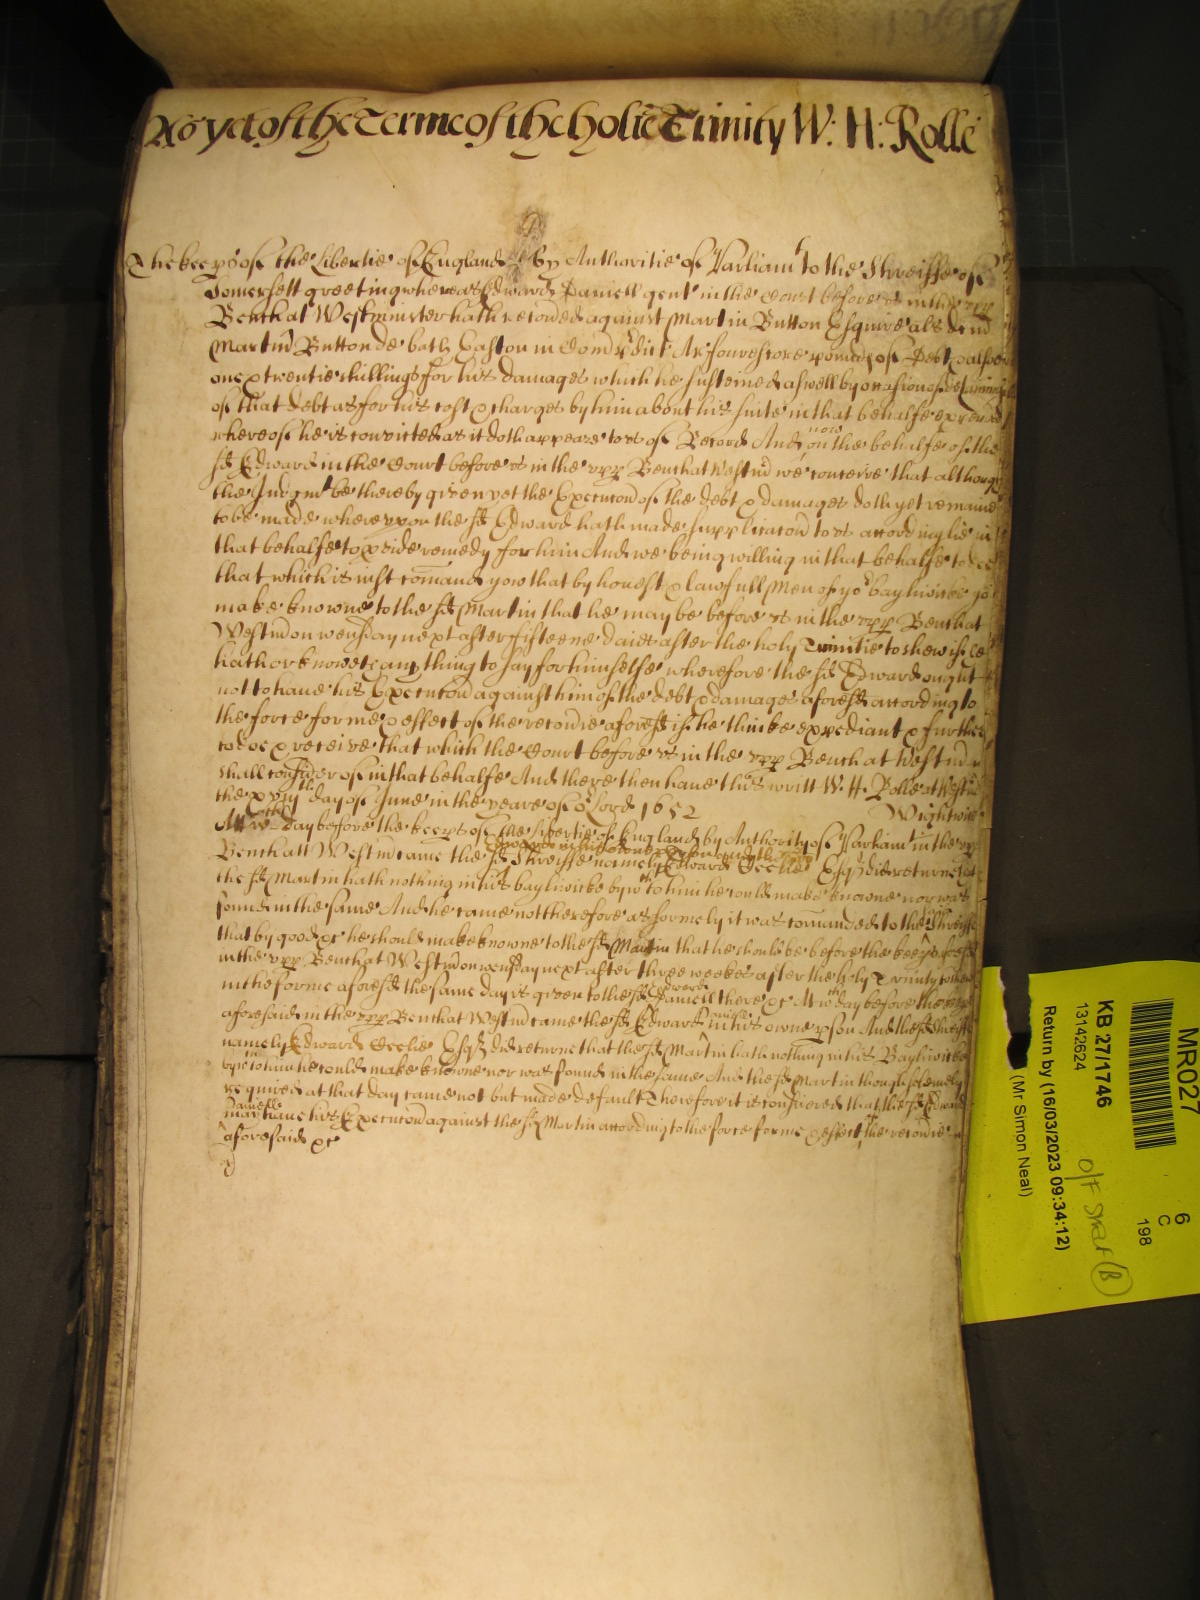 As yet of the Terme of the holie Trinity W: H: Rolle
The keeprs of the Libertie of England by Authoritie of Parliamt to the Shreiffe of
Somersett greeting whereas Edward Daniell gent in the Court before us in the upp
Bench at Westminister hath recoverd against Martin Button Esquire als dcm
Martin Button de Easton in Com fourescore pounds of Debt & alsoe
one & twentie shillings for his damages which he susteined aswell by occasion of detaining
of that debt as for his cost & charges by him about his suite in that behalfe expended
whereof he is convicted as it doth appeare to us of Record And now on the behalfe of the
sd Edward in the Court before us in the upp Bench at Westm we conceive that although
the Judgmt be thereby given yet the Execucon of the debt & damages doth yet remaine
to be made whereupon the sd Edward hath made supplicacon to us accordinglie in
that behalfe to pvide remedy for him And we being willing in that behalfe to doe
that which is iust comand yow that by honest & lawfull Men of yor bayliwicke yo
make knowne to the sd Martin that he may be before us in the upp Bench at
Westm on wensday next after fifteene daies after the holy Trinitie to shew if he
hath or knoweth any thing to say for himselfe wherefore the sd Edward ought
not to have his Execucon against him of the debt & damages aforesd according to
the force forme & effect of the recovrie aforesd if he thinke expediant & further
to doe & receive that which the Court before us in the upp Bench at Westm
shall consider of in that behalfe And there then have this writt W. H. Rolle at Westm
the xviijth day of June in the yeare of or Lord 1652 Wightwick
At wch day before the keeprs of the Libertie of England by Authority of Parliam in the upp
Bench att Westm came the sd Shreiffe namely Edward Esqr did returne that
the sd Martin hath nothing in his bayliwicke by wch to him he could make knowne nor was
found in the same And he came not therefore as formerly it was comanded to the Shreiffe
that by good &c he should make knowne to the sd Martin that he should be before the keeprs aforesd
in the upp Bench at Westm on wensday next after three weekes after the holy Trinity to shew
in the forme aforesd the same day is given to the sd Edward Daniell there &c At wch day before the keeprs
aforesaid in the upp Bench at Westm came the sd Edward Daniell in his owne pson And the sd Shreiffe
namely Edward Esqr did returne that the sd Martin hath nothing in his Bayliwicke
by wch to him he could make knowne nor was found in the same And the sd Martin though solemnly
required at that day came not but made default Therefore it is considered that the sd Edward
Daniell may have his Execucon against the sd Martin according to the force forme & effect of the recovrie
aforesaid &c
MR027
6
C
198
KB 27/1746
13142624
O/F Straf (B)
Return by (16/03/2023 09:34:12)
(Mr Simon Neal)